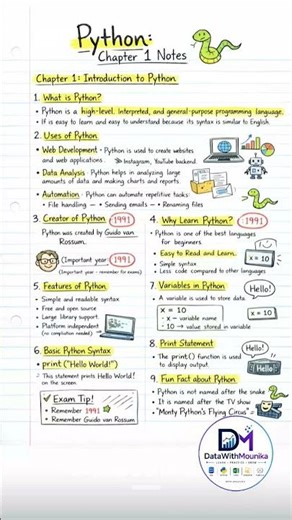 Python:
Chapter 1 Notes
Chapter 1: Introduction to Python
1. What is Python?
• Python is a high-level, interpreted, and general-purpose programming language.
• If is easy to learn and easy to understand because its syntax is similar to English.
2. Uses of Python
• Web Development - Python is used to create websites
and web applications.
Instagram, YouTube backend.
• Data Analysis - Python helps in analyzing large
amounts of data and making charts and reports.
• Automation - Python can automate repetitive tasks:
- File handling — → Sending emails — Renaming files
3. Creator of Python
1991
Python was created by Guido van
Rossum.
(Important year: 1991
(Important year - remember for exams)
4. Why Learn Python?
1991
Python is one of the best languages
for beginners
• Easy to Read and Learn.
• Simple syntax
• Less code compared to other languages
x = 10
5. Features of Python
• Simple and readable syntax
• Free and open source
• Large library support
• Platform independent
(no compilation needed)
7. Variables in Python
Hello!
• A variable is used to store data
x = 10
- x - variable name
- 10 → value stored in variable
x = 10
6. Basic Python Syntax
• print("Hello World!")
This statement prints Hello World!
on the screen.
8. Print Statement
Hello!
• The print() function is used
to display output.
Hello!
Exam Tip!
• Remember 1991
• Remember Guido van Rossum
9. Fun Fact about Python
• Python is not named after the snake
• It is named after the TV show
"Monty Python's Flying Circus"
DM
DataWithMounika